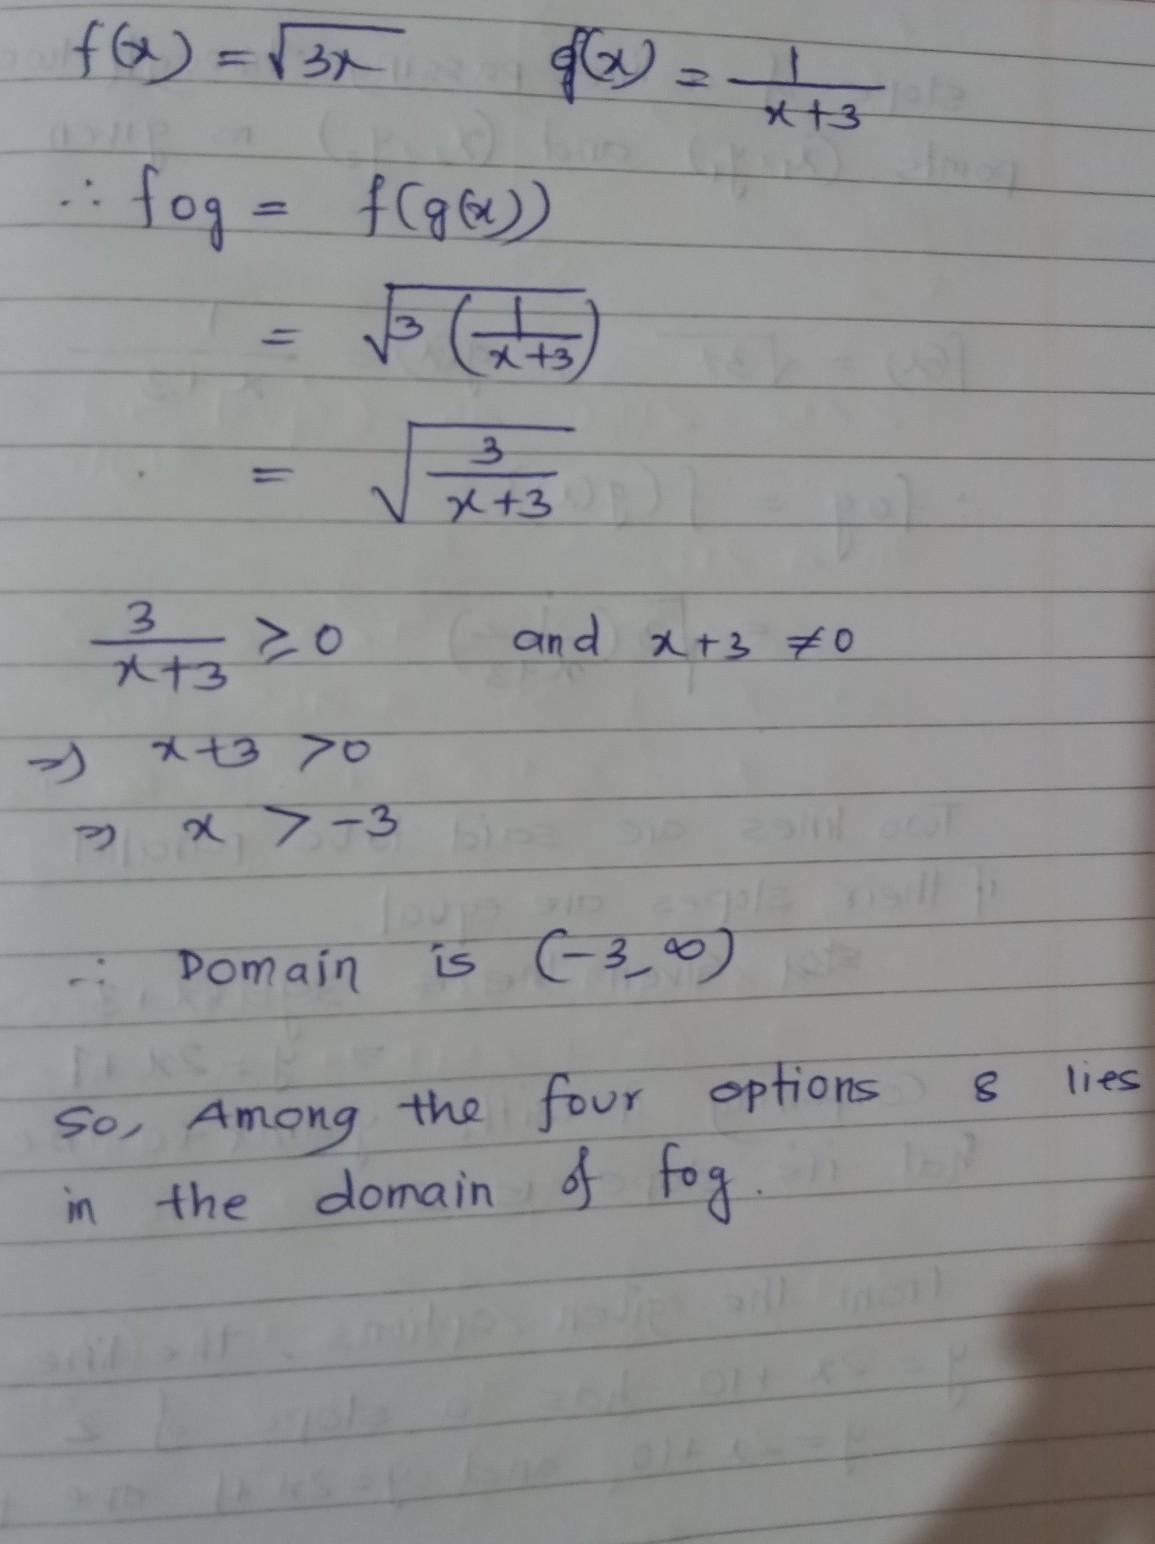 f(x) = √3x g(x) = 1/(x+3)
∴ fog = f(g(x))
= √3(1/(x+3))
= √(3/(x+3))
3/(x+3) ≥ 0 and x+3 ≠ 0
⇒ x+3 > 0
⇒ x > -3
∴ Domain is (-3, ∞)
So, Among the four options 8 lies
in the domain of fog.